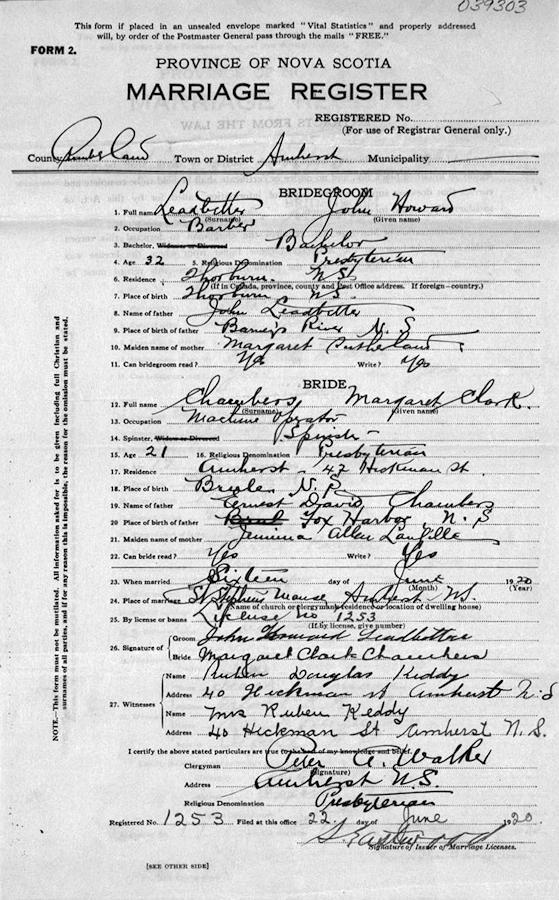 039303
This form if placed in an unsealed envelope marked "Vital Statistics" and properly addressed
will, by order of the Postmaster General pass through the mails "FREE."
FORM 2.
PROVINCE OF NOVA SCOTIA
MARRIAGE REGISTER
REGISTERED No.
(For use of Registrar General only.)
County Cumberland Town or District Amherst Municipality
BRIDEGROOM
1. Full name Leadbetter John Howard
(Surname) (Given name)
2. Occupation Barber
3. Bachelor, Widower or Divorced Bachelor
4. Age 32 5. Religious Denomination Presbyterian
6. Residence Thorburn N.S.
(If in Canada, province, county and Post Office address. If foreign—country.)
7. Place of birth Thorburn N.S.
8. Name of father John Leadbetter
9. Place of birth of father Barney's River N.S
10. Maiden name of mother Margaret Sutherland
11. Can bridegroom read? Yes Write? Yes
BRIDE
12. Full name Chambers Margaret Clark.
(Surname) (Given name)
13. Occupation Machine Operator
14. Spinster, Widow or Divorced Spinster
15. Age 21 16. Religious Denomination Presbyterian
17. Residence Amherst - 42 Hickman St.
18. Place of birth N.S
19. Name of father Ernest David Chambers
20. Place of birth of father Fox Harbor N.S
21. Maiden name of mother Jemima Allen
22. Can bride read? Yes Write? Yes
23. When married Sixteen day of June 1920
(Month) (Year)
24. Place of marriage St Stephens Manse Amherst NS.
(Name of church or clergyman's residence or location of dwelling house)
25. By license or banns License No 1253
(If by license, give number)
26. Signature of Groom John Howard Leadbetter
Bride Margaret Clark Chambers
27. Witnesses Name Ruben Douglas Keddy
Address 40 Hickman st Amherst N.S
Name Mrs Ruben Keddy
Address 40 Hickman St Amherst N.S.
I certify the above stated particulars are true to the best of my knowledge and belief.
Clergyman Peter A. Walker
(Signature)
Address Amherst N.S.
Religious Denomination Presbyterian
Registered No. 1253 Filed at this office 22 day of June 1920.
Eastwood
Signature of Issuer of Marriage Licenses.
[SEE OTHER SIDE]
NOTE.—This form must not be mutilated. All information asked for is to be given including full Christian and
surnames of all parties, and if for any reason this is impossible, the reason for the omission must be stated.